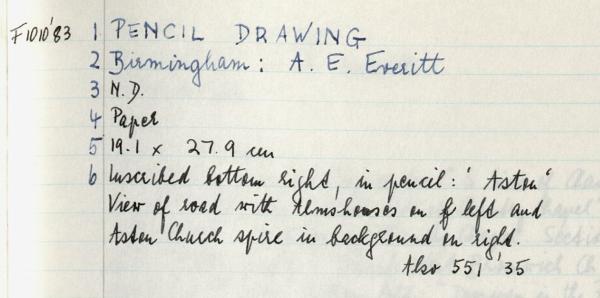 F1010'83 1 PENCIL DRAWING
2 Birmingham: A. E. Everitt
3 N.D.
4 Paper
5 19.1 x 27.9 cm
6 Inscribed bottom right, in pencil: ' Aston'
View of road with Almshouses on left and
Aston Church spire in background on right.
Also 551 '35